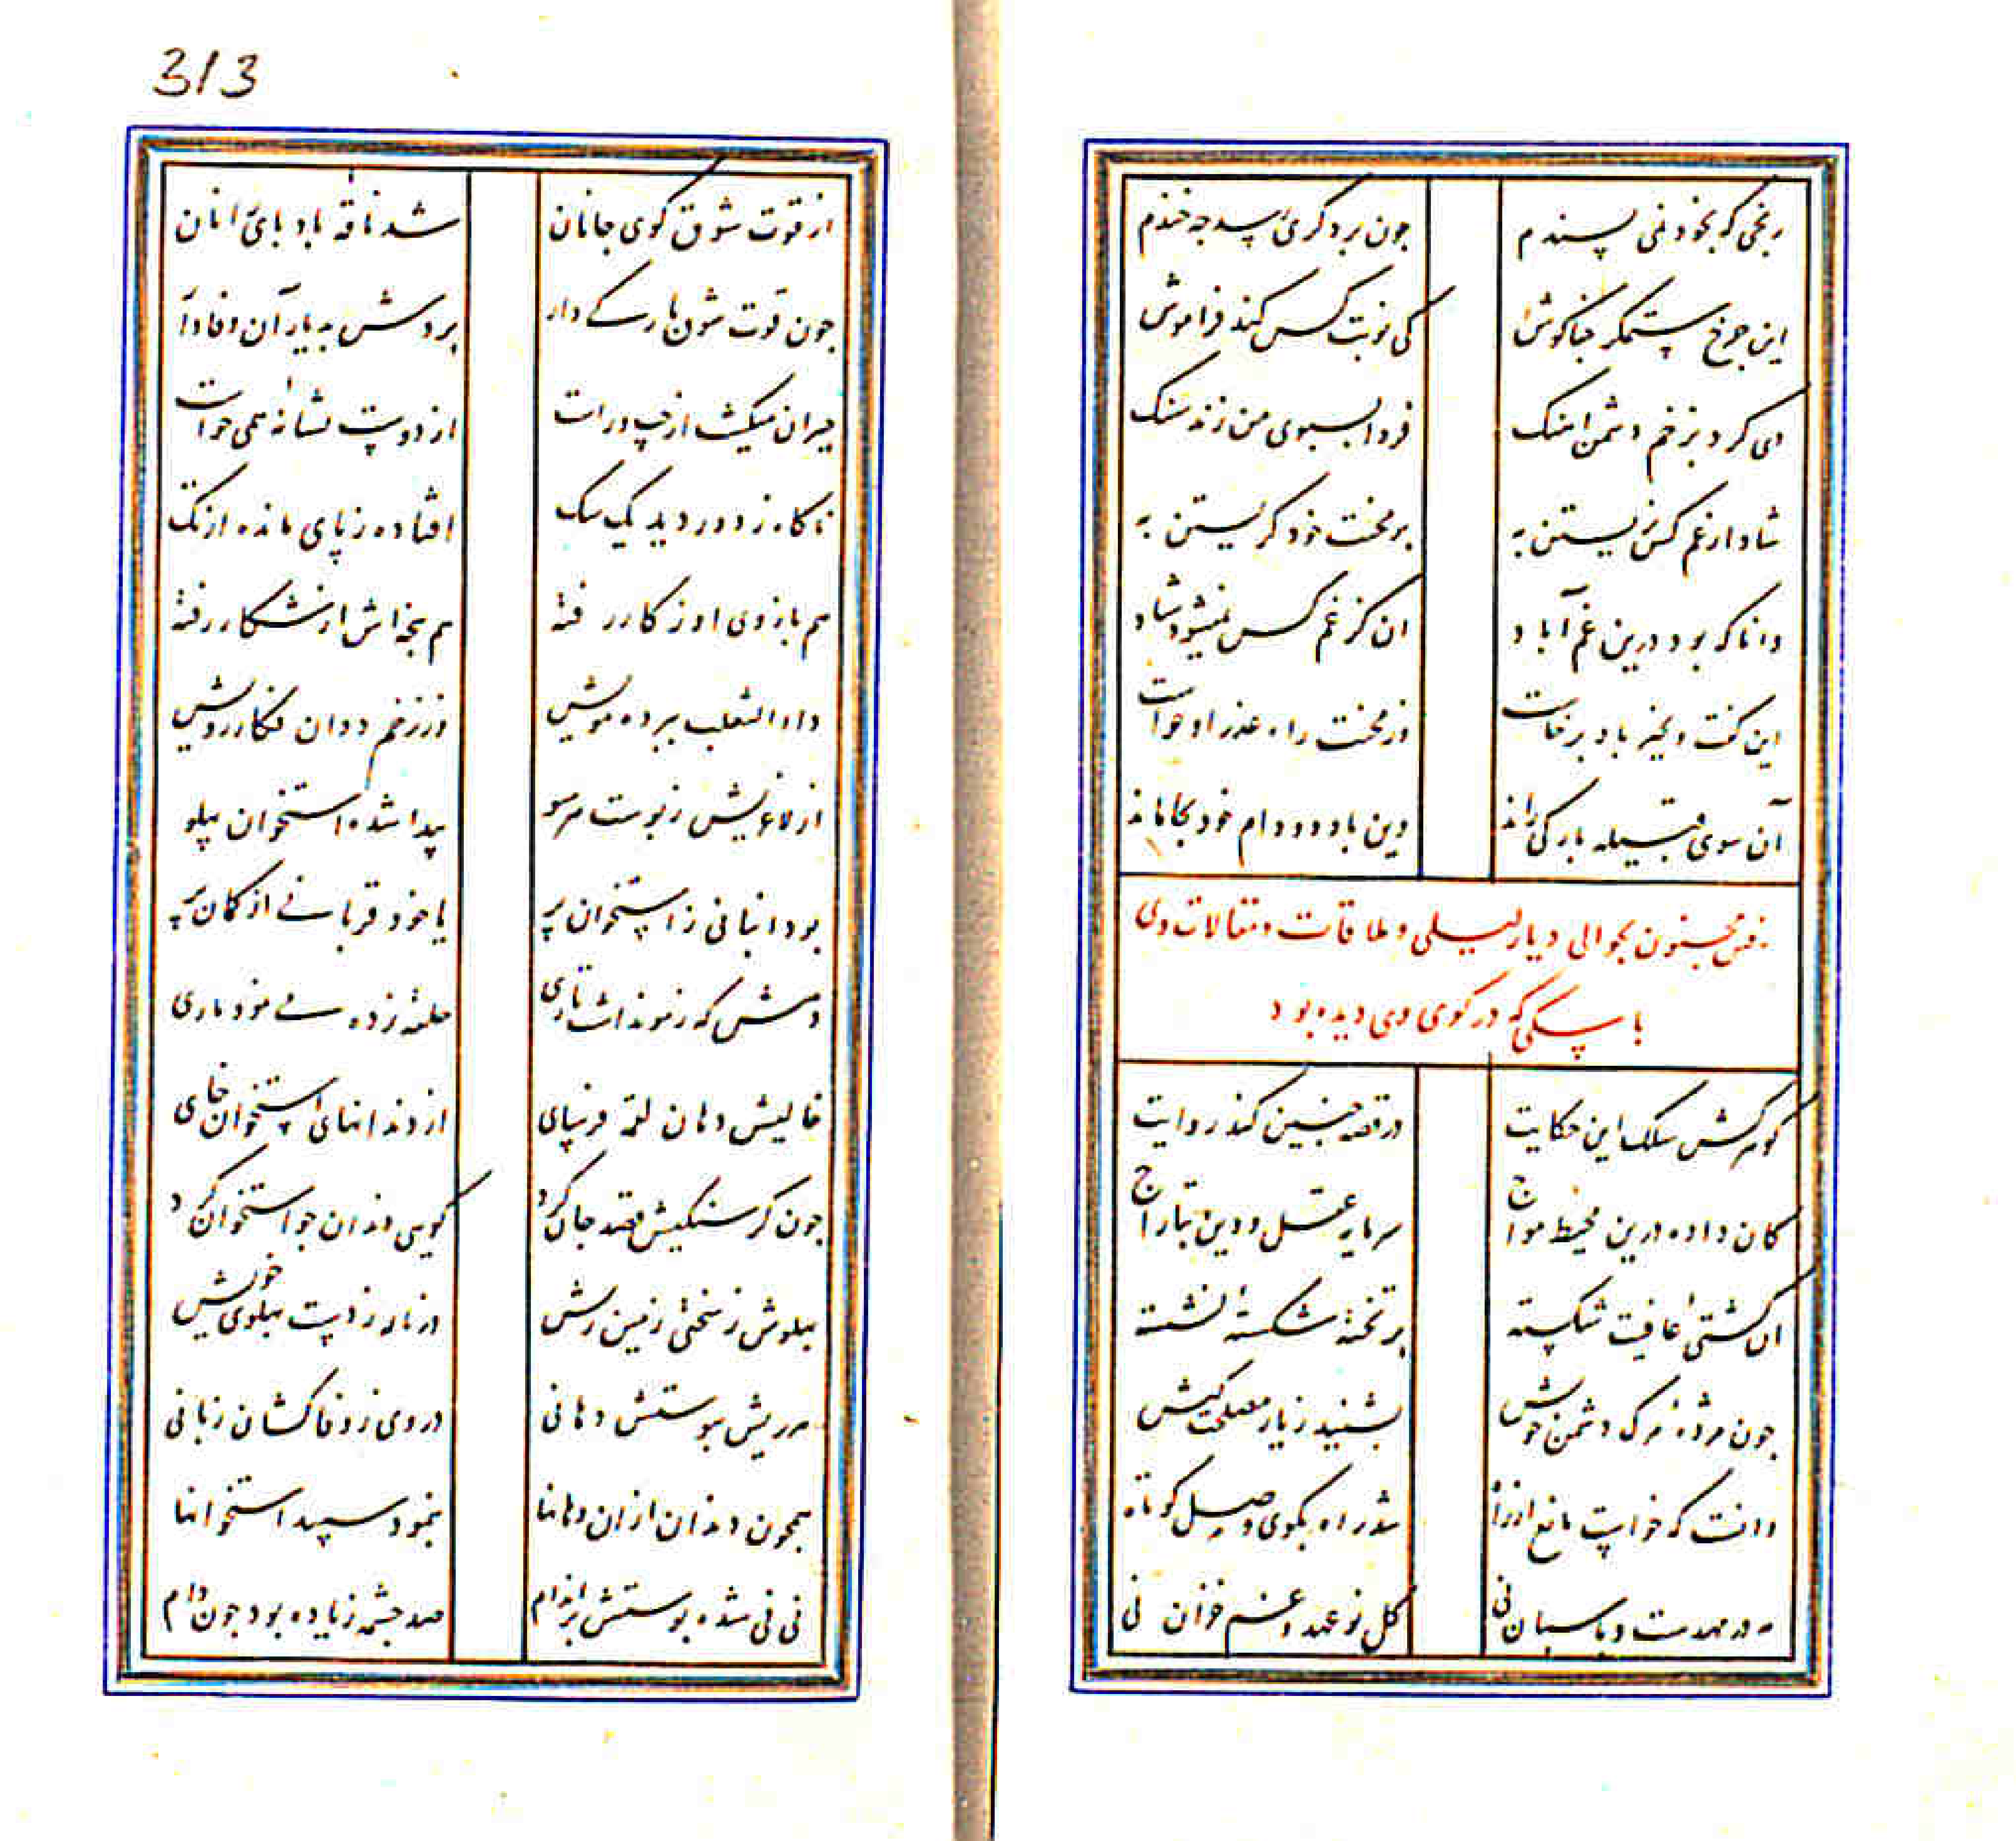 رنجی که بخود نمی پسندم جون بر دکری رسد جه خندم
این جرخ ستمکر جفاکوش کی نوبت کس کند فراموش
دی کرد بزخم دشمن اهنک فردا بسبوی من زند سنک
شاد از غم کس نزیستن به بر محنت خود کریستن به
دانا که بود درین غم آباد ان کز غم کس نمیشود شاد
این کفت و بخیرباد برخاست وز محنت راه عذر او خواست
آن سوی قبیله بارکی راند وین با دد و دام خود بجا ماند
رفتن مجنون بحوالی دیار لیلی و ملاقات و مقالات وی
با سکی که در کوی وی دیده بود
کوهرکش سلک این حکایت در قصه جنین کند روایت
کان داده درین محیط مواج سرمایه عقل و دین بتاراج
ان کشتی عافیت شکسته بر تخته شکسته نشسته
جون مژده مرک دشمن خویش بشنید ز یار مصلحت کیش
دانست که خواست مانع از راه شد راه بکوی وصل کوتاه
مه در مهدست و پاسبان نی کل نو عهد و غم خزان نی
313
از قوت شوق کوی جانان شد ناقه باد پای انان
جون قوت شوق بارکی دار بردش به دیار آن وفادار
حیران میکشت از جپ و راست از دوست نشانه همی خواست
ناکاه ز دور دید یک سک افتاده ز پای مانده از تک
هم بازوی او ز کار رفته هم پنجه اش از شکار رفته
داء الثعلب ببرده مویش وز زخم ددان فکار رویش
از لاغریش ز پوست هر سو پیدا شده استخوان پهلو
بود انبانی ز استخوان پر یا خود قربانی از کمان پر
دمش که ز مو نداشت تاری حلقه زده بی مو دماری
خالیش دهان لقمه فرسای از دندانهای استخوان خای
جون کرسنکیش قصد جان کرد کویی دندان جو استخوان کرد
پهلوش ز سختی زمین ریش در ناله ز دست پهلوی خویش
هر ریش بپوستش دهانی در وی ز وفا کشان زبانی
همجون دندان ازان دهانها بنمود سپید استخوانها
نی نی شده پوستش بر اندام صد جشمه زیاده بود جون دام